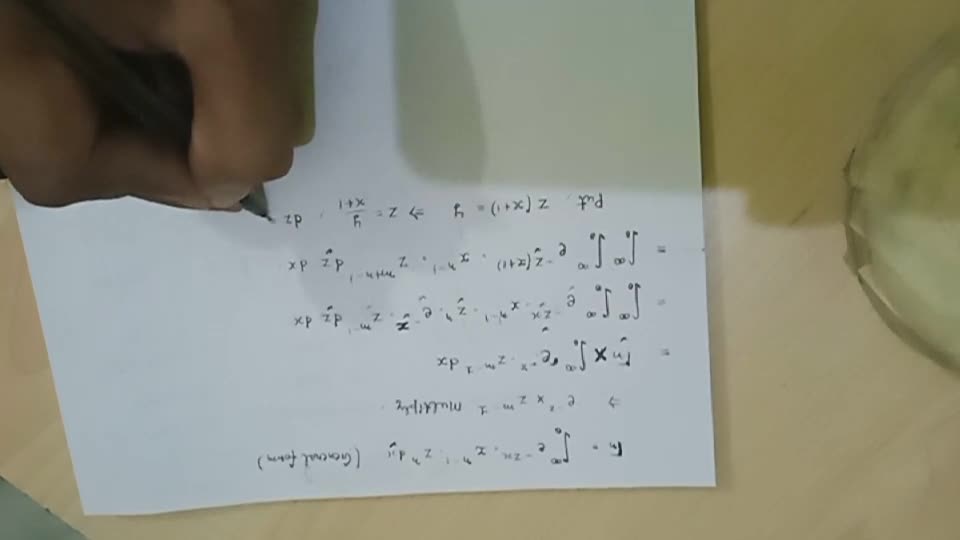 Γn = ∫₀^∞ e^-zx · x^n-1 · z^n dx (General form)
⇒ e^-z x z^m-1 Multiply.
= ∫₀^∞ ∫₀^∞ e^-zx · x^n-1 · z^n · e^-z · z^m-1 dz dx
= ∫₀^∞ ∫₀^∞ e^-z(x+1) · x^n-1 · z^m+n-1 dz dx
Put, z(x+1) = y ⇒ z = y/x+1, dz